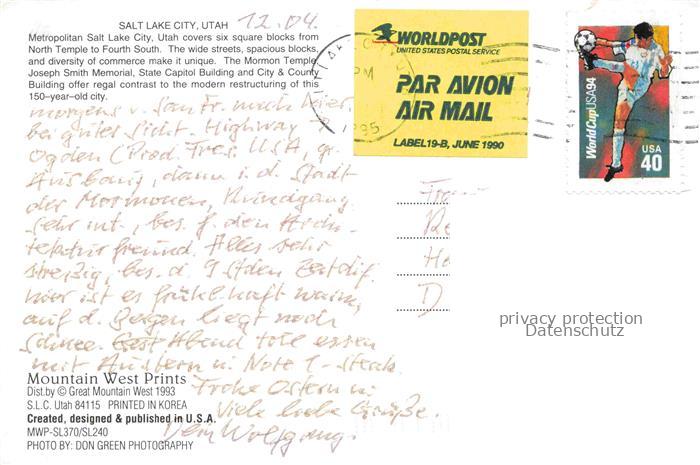 SALT LAKE CITY, UTAH 12.04.
Metropolitan Salt Lake City, Utah covers six square blocks from
North Temple to Fourth South. The wide streets, spacious blocks,
and diversity of commerce make it unique. The Mormon Temple,
Joseph Smith Memorial, State Capitol Building and City & County
Building offer regal contrast to the modern restructuring of this
150-year-old city.
morgens v. San Fr. nach hier,
bei guter Sicht. Highway
Ogden (Prod. Fres. USA, gr.
dann i. d. Stadt
der Mormonen, Rundgang
sehr int., bes. f. den Archi-
tekturfreund. Alles sehr
bes. d. 9 Stden Zeitdif.
hier ist es frühl.haft warm,
auf d. Bergen liegt noch
Schnee. Abend toll essen
mit Austern u. Note 1-Steak.
Frohe Ostern u.
Viele liebe Grüße.
Dein Wolfgang.
Mountain West Prints
Dist.by © Great Mountain West 1993
S.L.C. Utah 84115 PRINTED IN KOREA
Created, designed & published in U.S.A.
MWP-SL370/SL240
PHOTO BY: DON GREEN PHOTOGRAPHY
WORLDPOST
UNITED STATES POSTAL SERVICE
PAR AVION
AIR MAIL
LABEL 19-B, JUNE 1990
PM
1995
World Cup USA 94
USA
40
D
privacy protection
Datenschutz